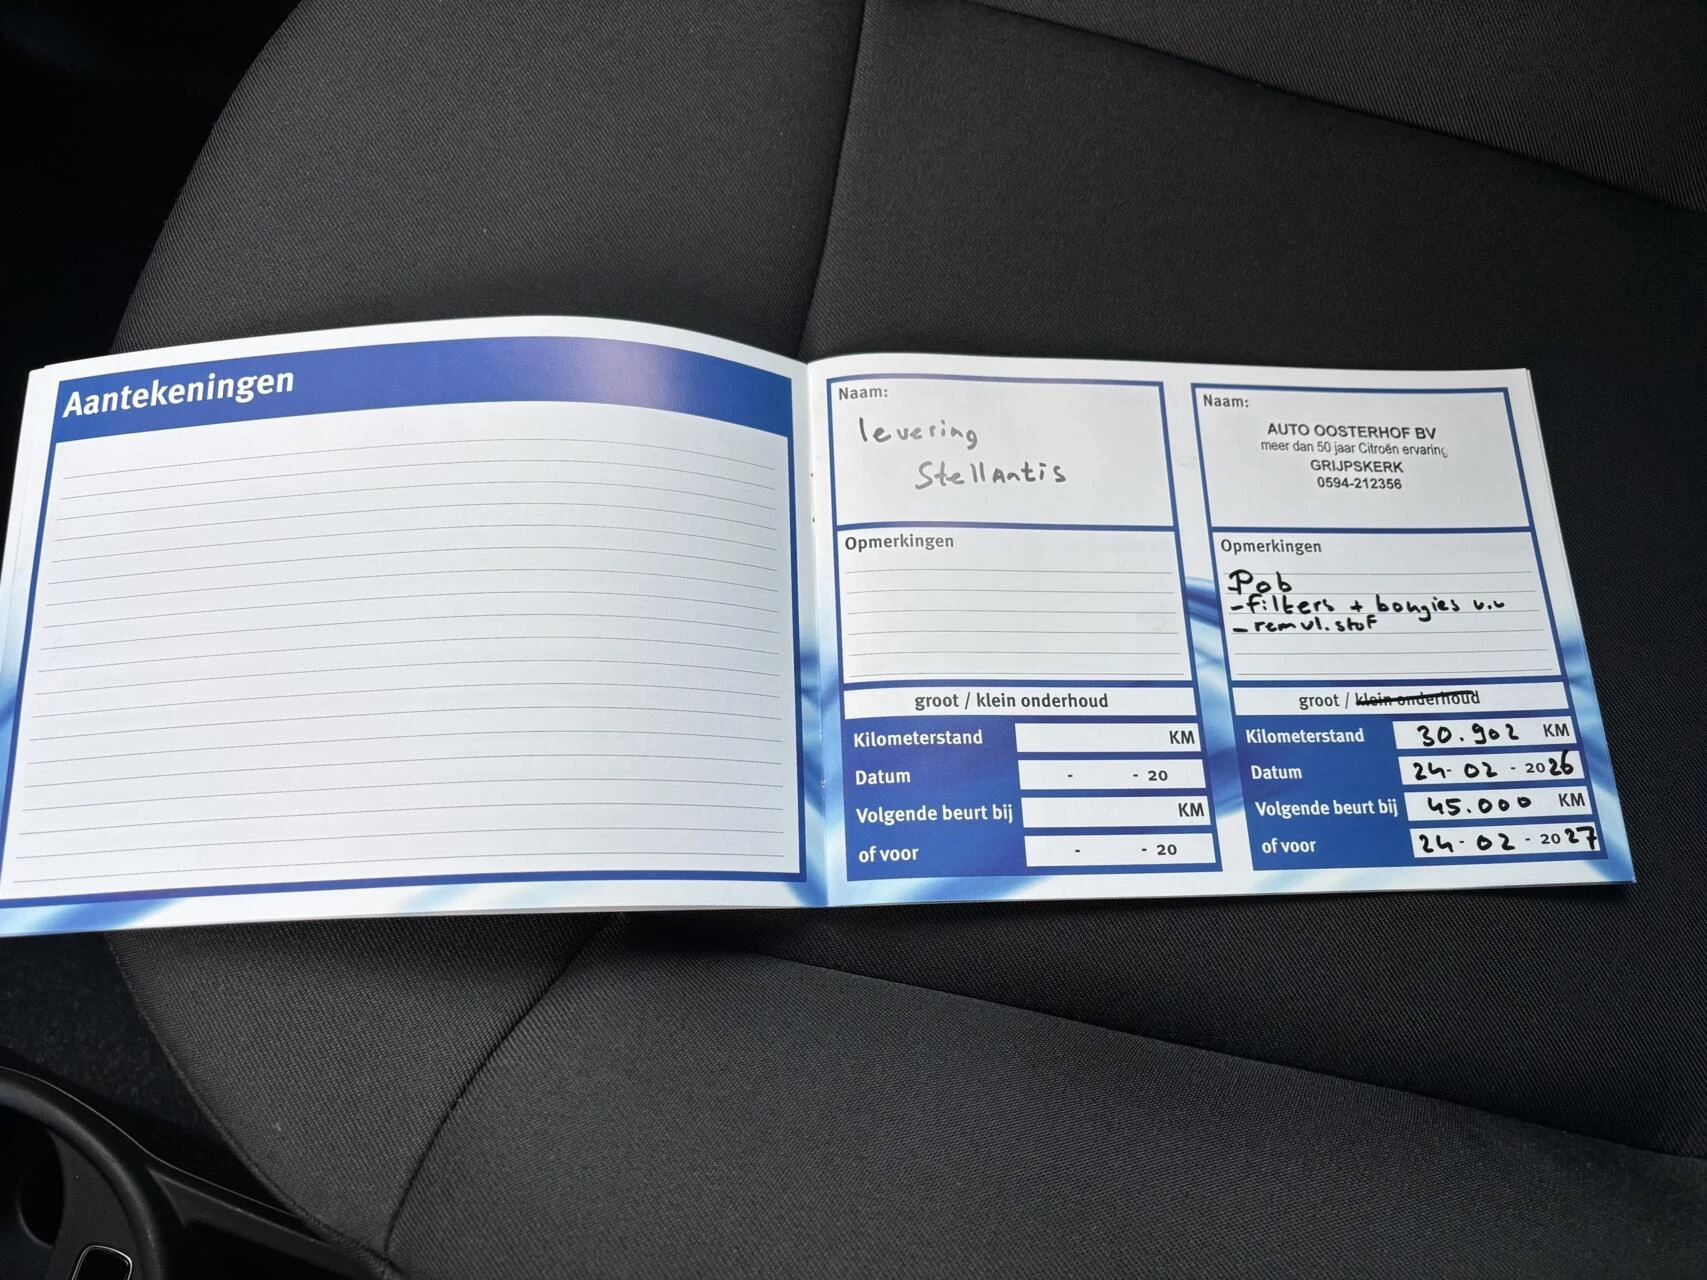 Aantekeningen
Naam:
levering
Stellantis
Opmerkingen
groot / klein onderhoud
Kilometerstand KM
Datum - - 20
Volgende beurt bij KM
of voor - - 20
Naam:
AUTO OOSTERHOF BV
meer dan 50 jaar Citroën ervaring
GRIJPSKERK
0594-212356
Opmerkingen
Pob
-filters + bougies v.v
- remvl.stof
groot / klein onderhoud
Kilometerstand 30.902 KM
Datum 24- 02 - 2026
Volgende beurt bij 45.000 KM
of voor 24- 02 - 2027